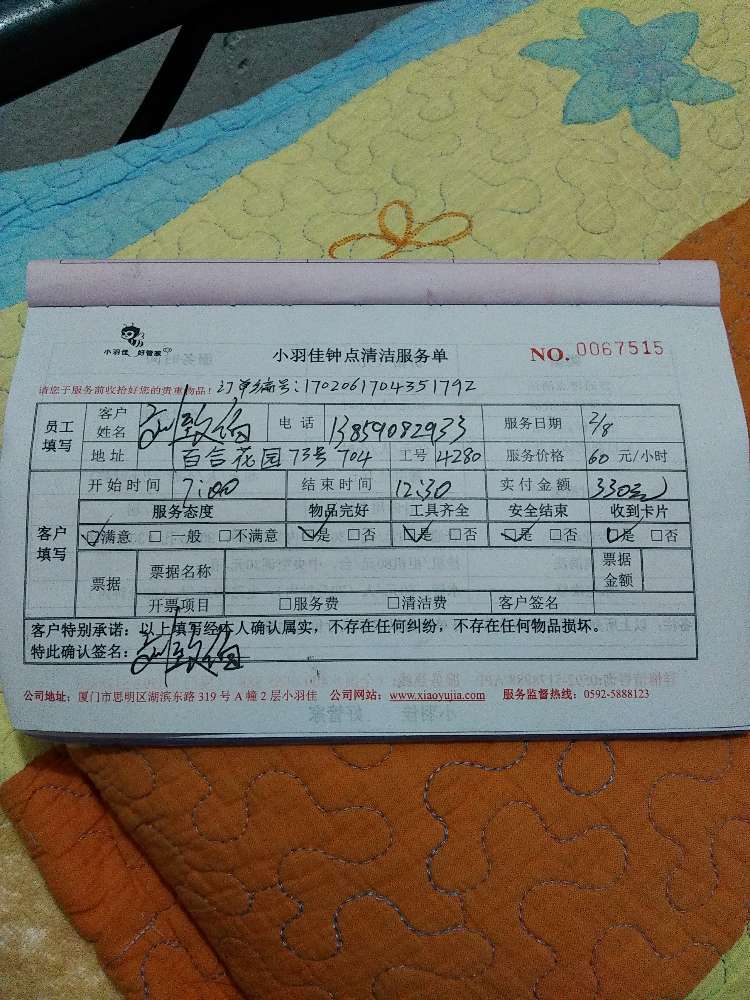 小羽佳 好管家
小羽佳钟点清洁服务单 NO. 0067515
请您于服务前收拾好您的贵重物品! 订单编号:1702061704351792
员工填写 客户姓名 电话 13859082933 服务日期 2/8
地址 百合花园73号704 工号 4280 服务价格 60 元/小时
客户填写 开始时间 7:00 结束时间 12:30 实付金额 330元
服务态度 物品完好 工具齐全 安全结束 收到卡片
☑满意 □一般 □不满意 ☑是 □否 ☑是 □否 ☑是 □否 ☑是 □否
票据 票据名称 票据金额
开票项目 □服务费 □清洁费 客户签名
客户特别承诺:以上填写经本人确认属实,不存在任何纠纷,不存在任何物品损坏。
特此确认签名:
公司地址:厦门市思明区湖滨东路 319 号 A 幢 2 层小羽佳 公司网站:www.xiaoyujia.com 服务监督热线:0592-5888123